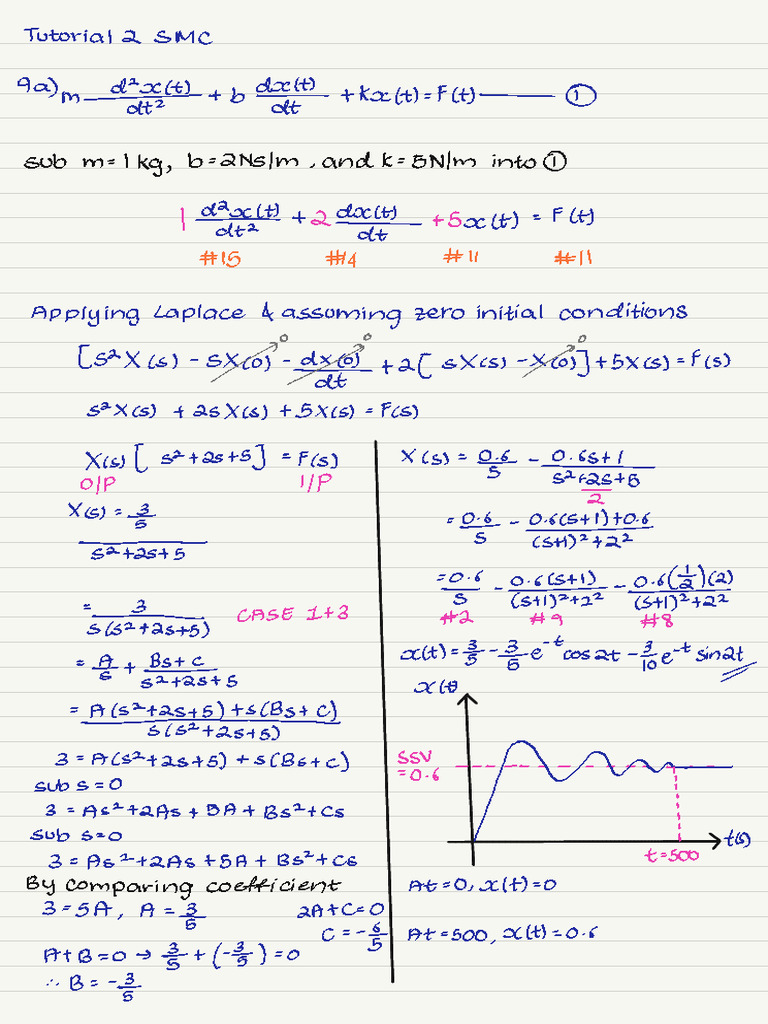 Tutorial 2 SMC
9a) m d²x(t)/dt² + b dx(t)/dt + kx(t) = F(t) ——— ①
sub m = 1 kg, b = 2Ns/m, and k = 5N/m into ①
1 d²x(t)/dt² + 2 dx(t)/dt + 5x(t) = F(t)
#15 #14 #11 #11
Applying Laplace & assuming zero initial conditions
[s²X(s) - sX(0) - dx(0)/dt + 2[ sX(s) - X(0)] + 5X(s) = F(s)
0 0 0
s²X(s) + 2sX(s) + 5X(s) = F(s)
X(s) [ s² + 2s + 5] = F(s)
O/P I/P
X(s) = 3/5
s² + 2s + 5
= 3/s(s² + 2s + 5) CASE 1+3
= A/s + Bs + C/s² + 2s + 5
= A(s² + 2s + 5) + s(Bs + C)/s(s² + 2s + 5)
3 = A(s² + 2s + 5) + s(Bs + C)
sub s = 0
3 = As² + 2As + 5A + Bs² + Cs
sub s = 0
3 = As² + 2As + 5A + Bs² + Cs
By comparing coefficient
3 = 5A, A = 3/5 2A + C = 0
C = -6/5
A + B = 0 → 3/5 + (-3/5) = 0
∴ B = -3/5
X(s) = 0.6/s - 0.6s + 1/s² + 2s + 5
2
= 0.6/s - 0.6(s+1) + 0.6/(s+1)² + 2²
= 0.6/s - 0.6(s+1)/(s+1)² + 2² - 0.6(1/2)(2)/(s+1)² + 2²
#2 #9 #8
x(t) = 3/5 - 3/5 e^-t cos2t - 3/10 e^-t sin2t
x(t)
SSV
= 0.6
t(s)
t = 500
At = 0, x(t) = 0
At = 500, x(t) = 0.6